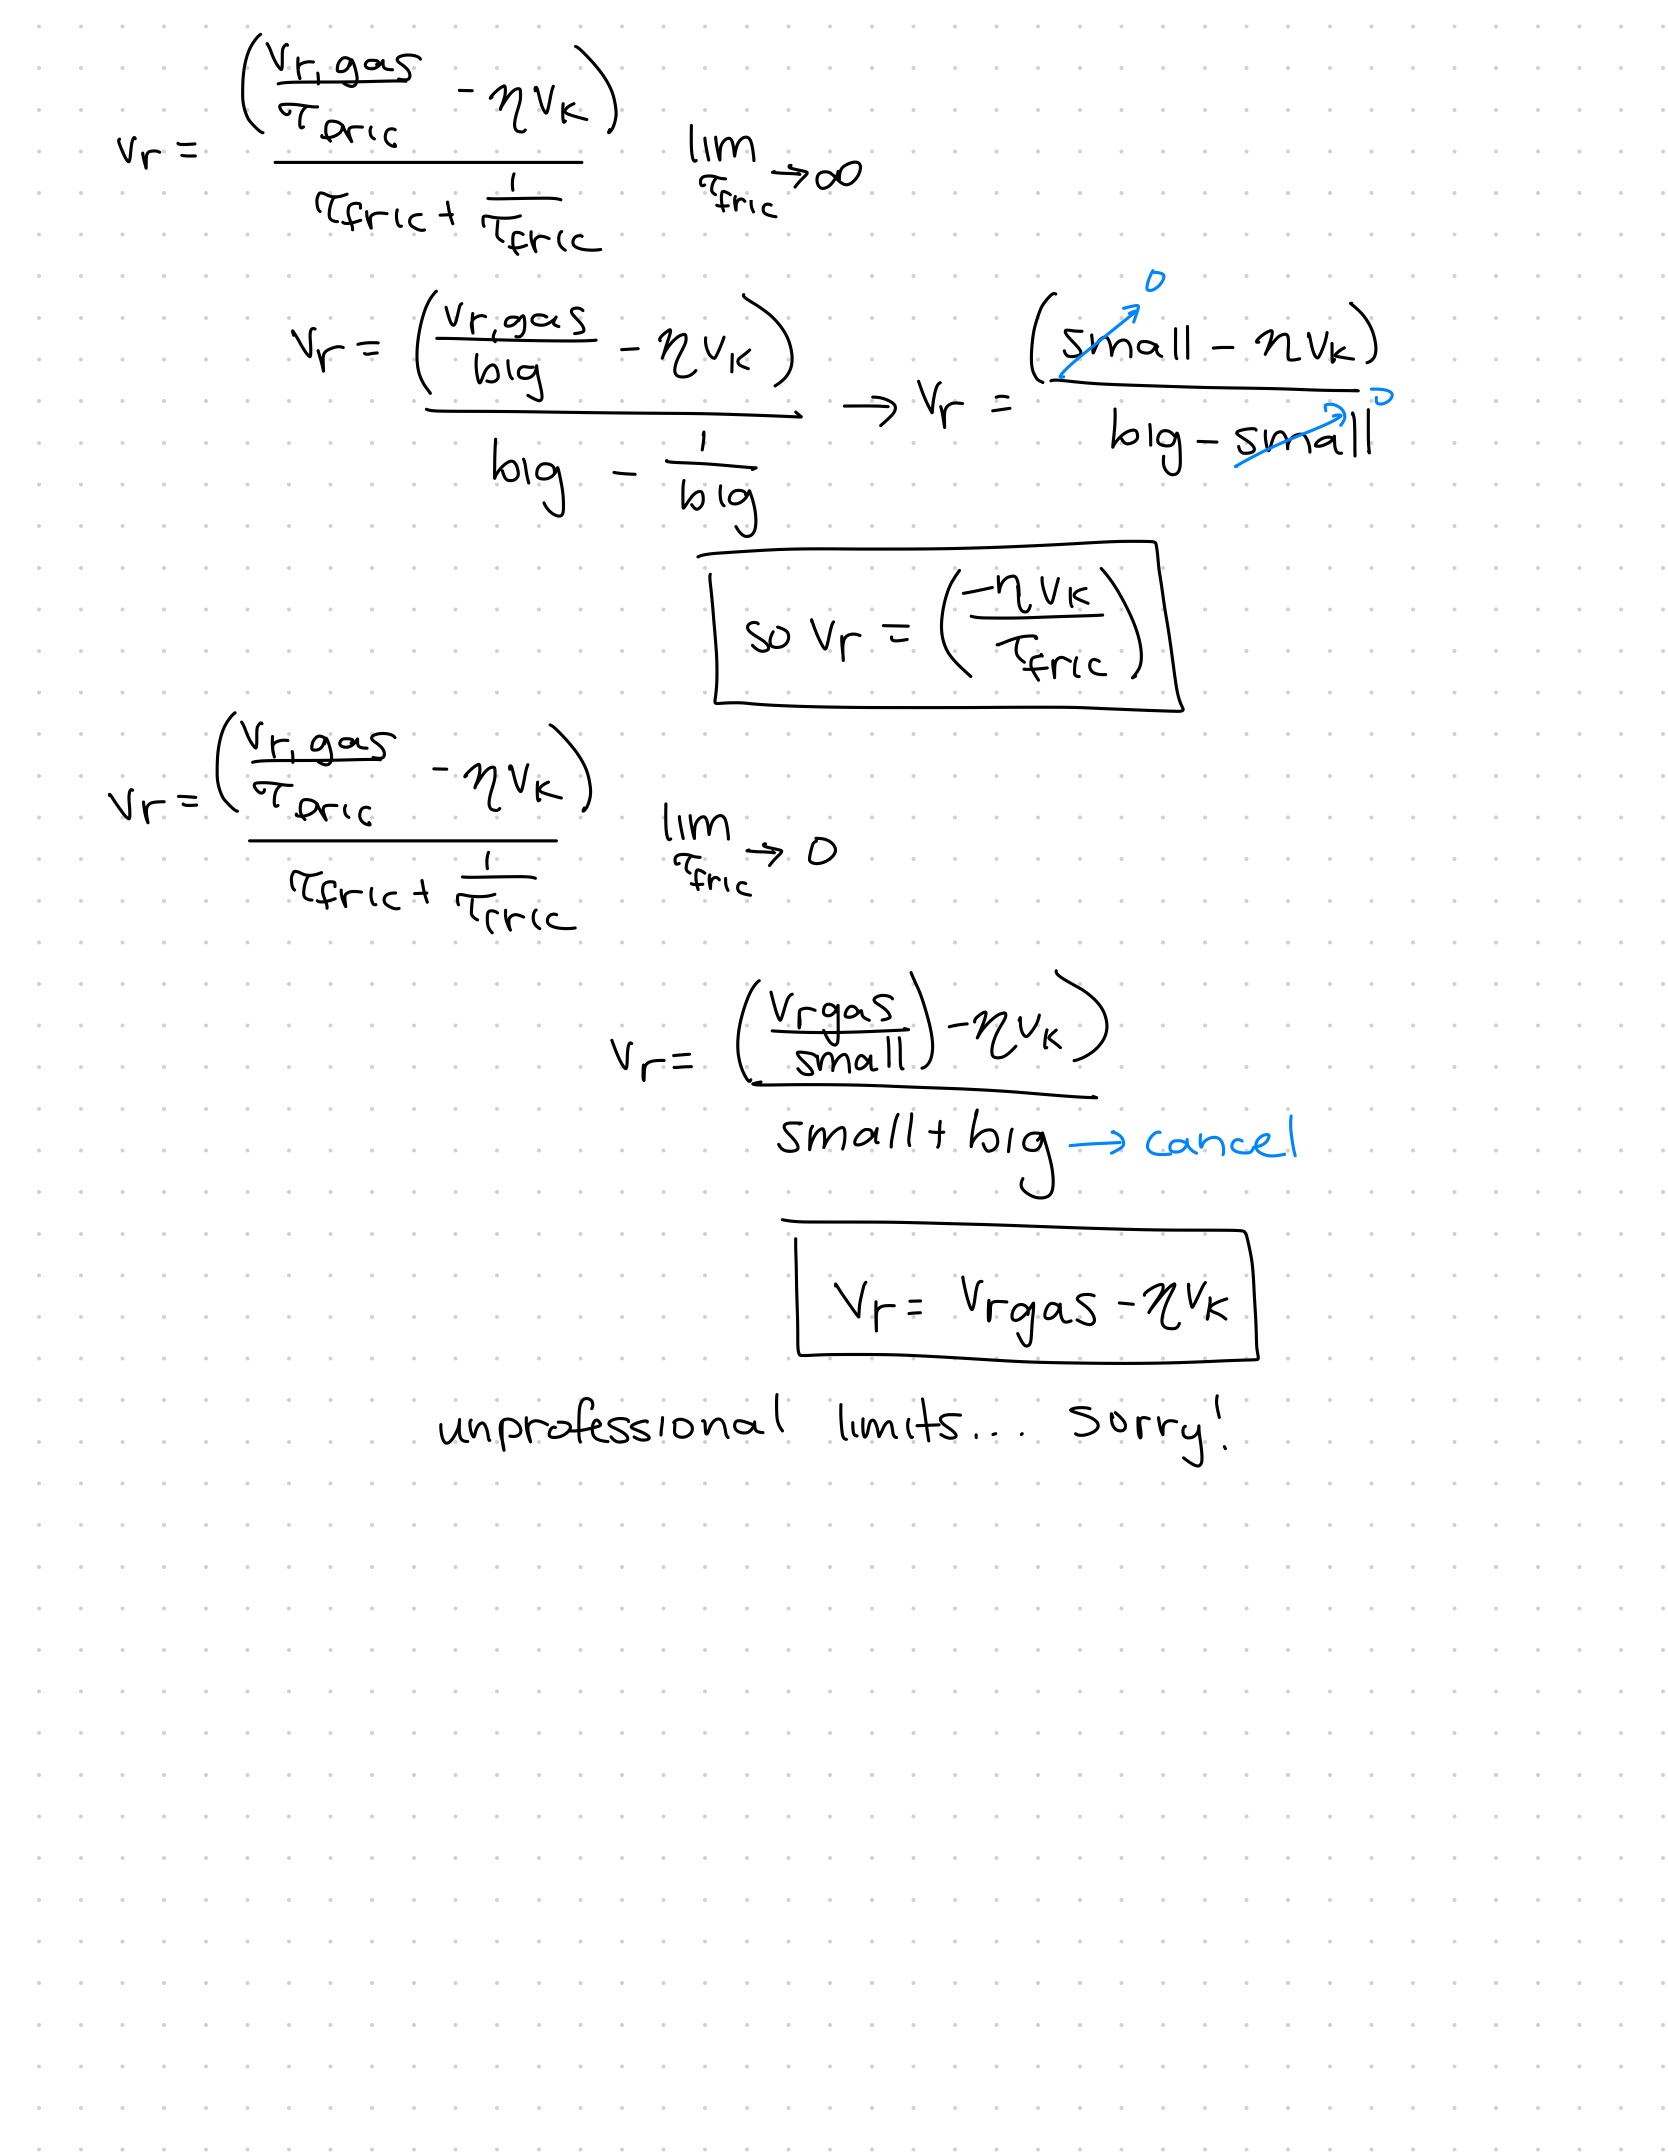 v_r = (v_r,gas/τ_fric - ηv_K) / (τ_fric + 1/τ_fric) lim τ_fric → ∞
v_r = (v_r,gas/big - ηv_K) / (big - 1/big) → v_r = (small - ηv_K) / (big - small) 0 0
so v_r = (-ηv_K / τ_fric)
v_r = (v_r,gas/τ_fric - ηv_K) / (τ_fric + 1/τ_fric) lim τ_fric → 0
v_r = ((v_rgas/small) - ηv_K) / (small + big) → cancel
v_r = v_rgas - ηv_K
unprofessional limits... sorry!